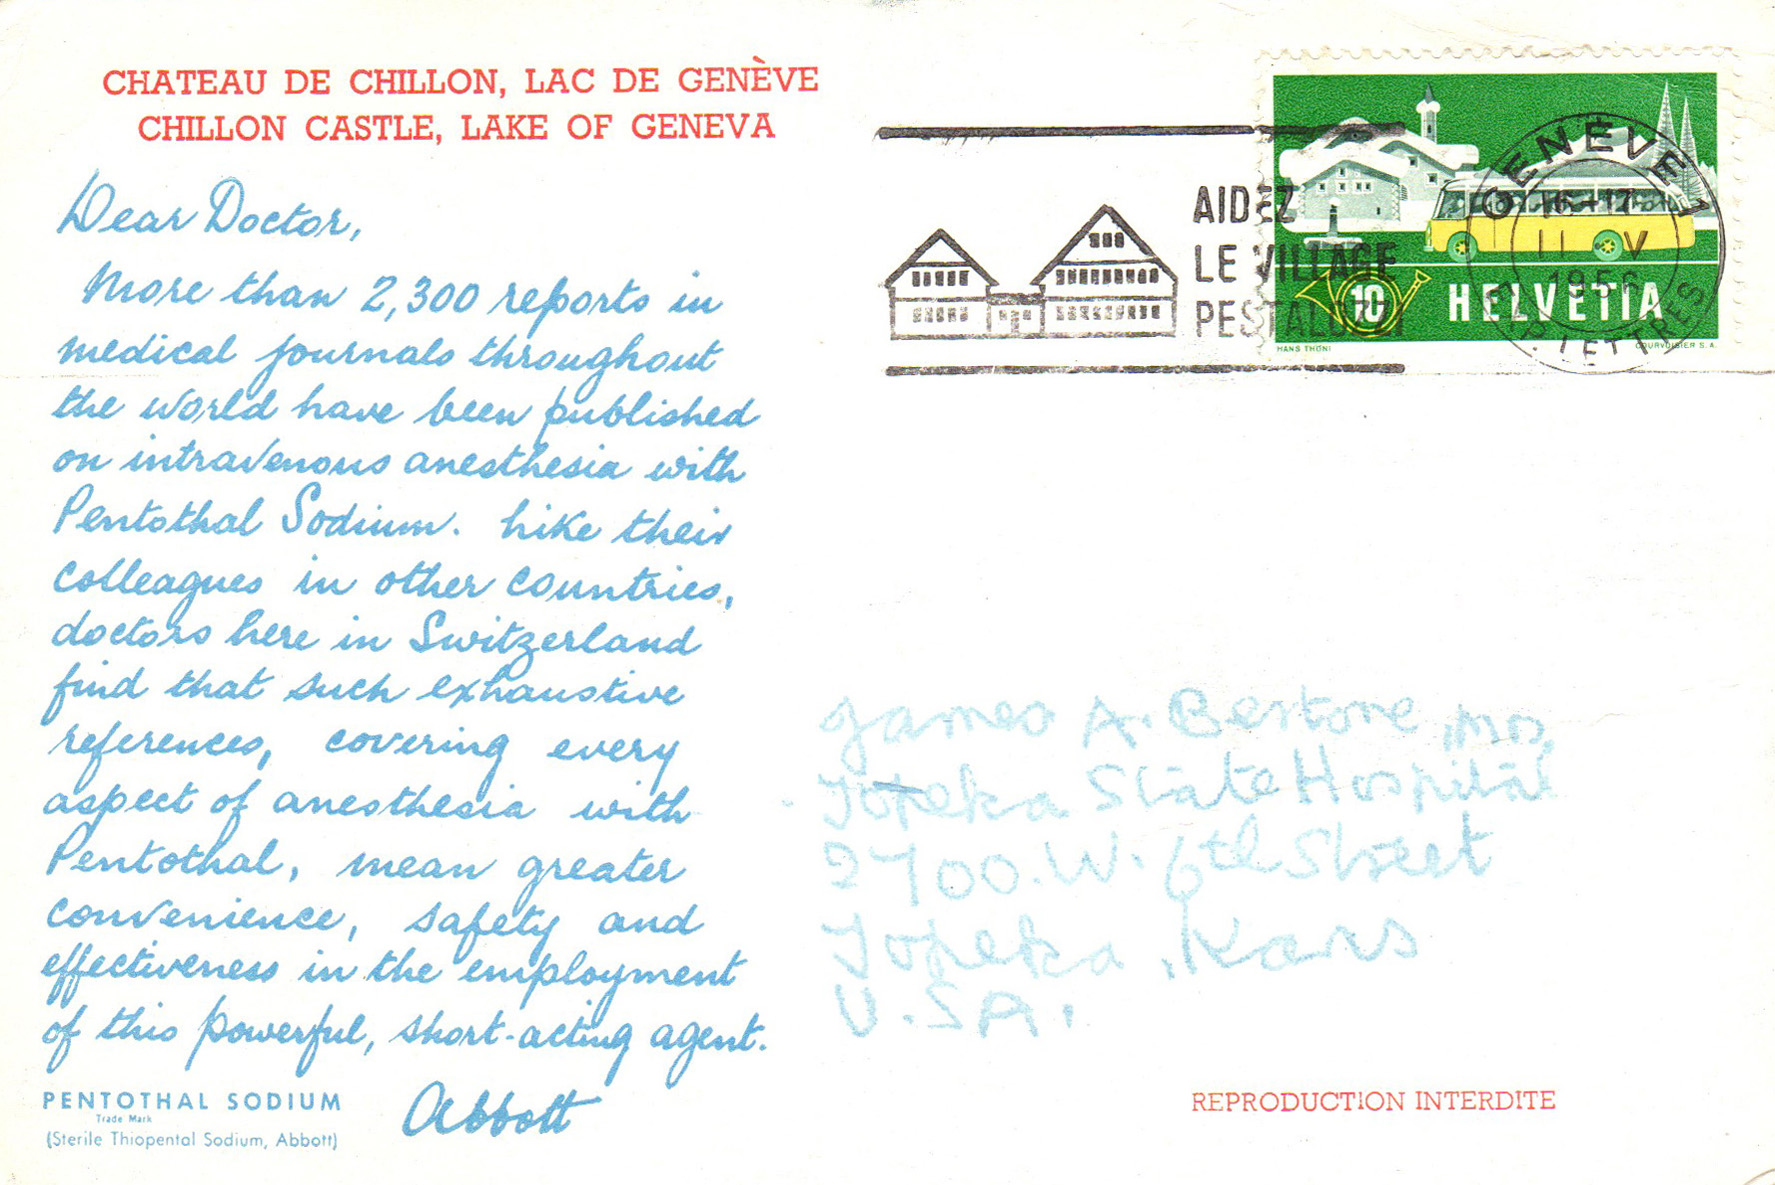 CHATEAU DE CHILLON, LAC DE GENÈVE
CHILLON CASTLE, LAKE OF GENEVA
Dear Doctor,
More than 2,300 reports in
medical journals throughout
the world have been published
on intravenous anesthesia with
Pentothal Sodium. Like their
colleagues in other countries,
doctors here in Switzerland
find that such exhaustive
references, covering every
aspect of anesthesia with
Pentothal, mean greater
convenience, safety and
effectiveness in the employment
of this powerful, short-acting agent.
Abbott
PENTOTHAL SODIUM
Trade Mark
(Sterile Thiopental Sodium, Abbott)
AIDEZ
LE VILLAGE
PESTALOZZI
GENÈVE 1
16-17
11 V
1956
EXP. LETTRES
10 HELVETIA
HANS THÖNI
COURVOISIER S.A.
James A. Bertone, MD,
Topeka State Hospital
2700 W. 6th Street
Topeka, Kans
U.S.A.
REPRODUCTION INTERDITE